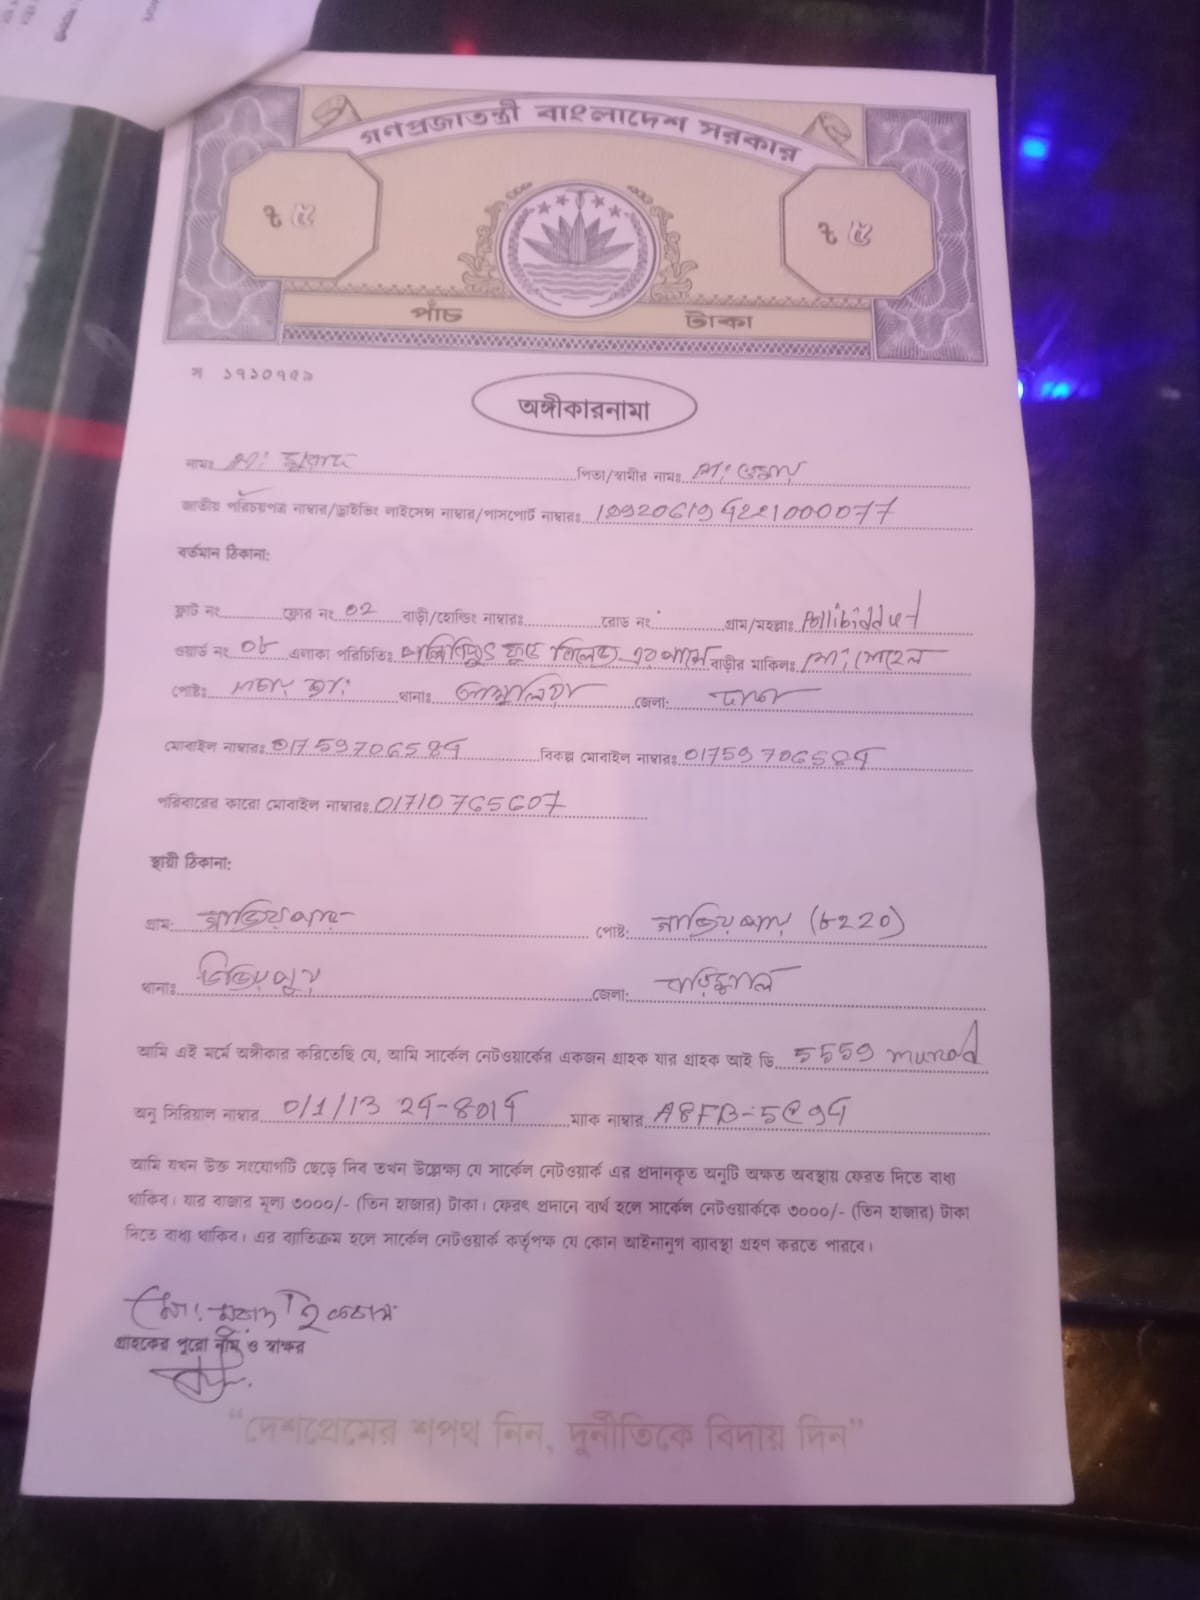 গণপ্রজাতন্ত্রী বাংলাদেশ সরকার
৳ ৫
৳ ৫
পাঁচ টাকা
স ১৭১০৭৫৯
অঙ্গীকারনামা
নামঃ মো: মুরাদ পিতা/স্বামীর নামঃ মো:
জাতীয় পরিচয়পত্র নাম্বার/ড্রাইভিং লাইসেন্স নাম্বার/পাসপোর্ট নাম্বারঃ
বর্তমান ঠিকানা:
ফ্লাট নং ফ্লোর নং ০2 বাড়ী/হোল্ডিং নাম্বারঃ রোড নং গ্রাম/মহল্লাঃ Pollibiddut
ওয়ার্ড নং ০৮ এলাকা পরিচিতিঃ পল্লিবিদ্যুৎ এর পাশে বাড়ীর মালিকঃ মো: সোহেল
পোষ্টঃ থানাঃ আশুলিয়া জেলা: ঢাকা
মোবাইল নাম্বারঃ 01759706584 বিকল্প মোবাইল নাম্বারঃ 01759706584
পরিবারের কারো মোবাইল নাম্বারঃ 01710765607
স্থায়ী ঠিকানা:
গ্রাম: পোষ্ট: (৮220)
থানাঃ উজিরপুর জেলা: বরিশাল
আমি এই মর্মে অঙ্গীকার করিতেছি যে, আমি সার্কেল নেটওয়ার্কের একজন গ্রাহক যার গ্রাহক আই ডি 5559 murad
অনু সিরিয়াল নাম্বার 0/1/13 24-8014 ম্যাক নাম্বার
আমি যখন উক্ত সংযোগটি ছেড়ে দিব তখন উল্লেক্ষ্য যে সার্কেল নেটওয়ার্ক এর প্রদানকৃত অনুটি অক্ষত অবস্থায় ফেরত দিতে বাধ্য
থাকিব। যার বাজার মূল্য ৩০০০/- (তিন হাজার) টাকা। ফেরৎ প্রদানে ব্যর্থ হলে সার্কেল নেটওয়ার্ককে ৩০০০/- (তিন হাজার) টাকা
দিতে বাধ্য থাকিব। এর ব্যাতিক্রম হলে সার্কেল নেটওয়ার্ক কর্তৃপক্ষ যে কোন আইনানুগ ব্যাবস্থা গ্রহণ করতে পারবে।
মো: মুরাদ
গ্রাহকের পুরো নাম ও স্বাক্ষর
“দেশপ্রেমের শপথ নিন, দুর্নীতিকে বিদায় দিন”